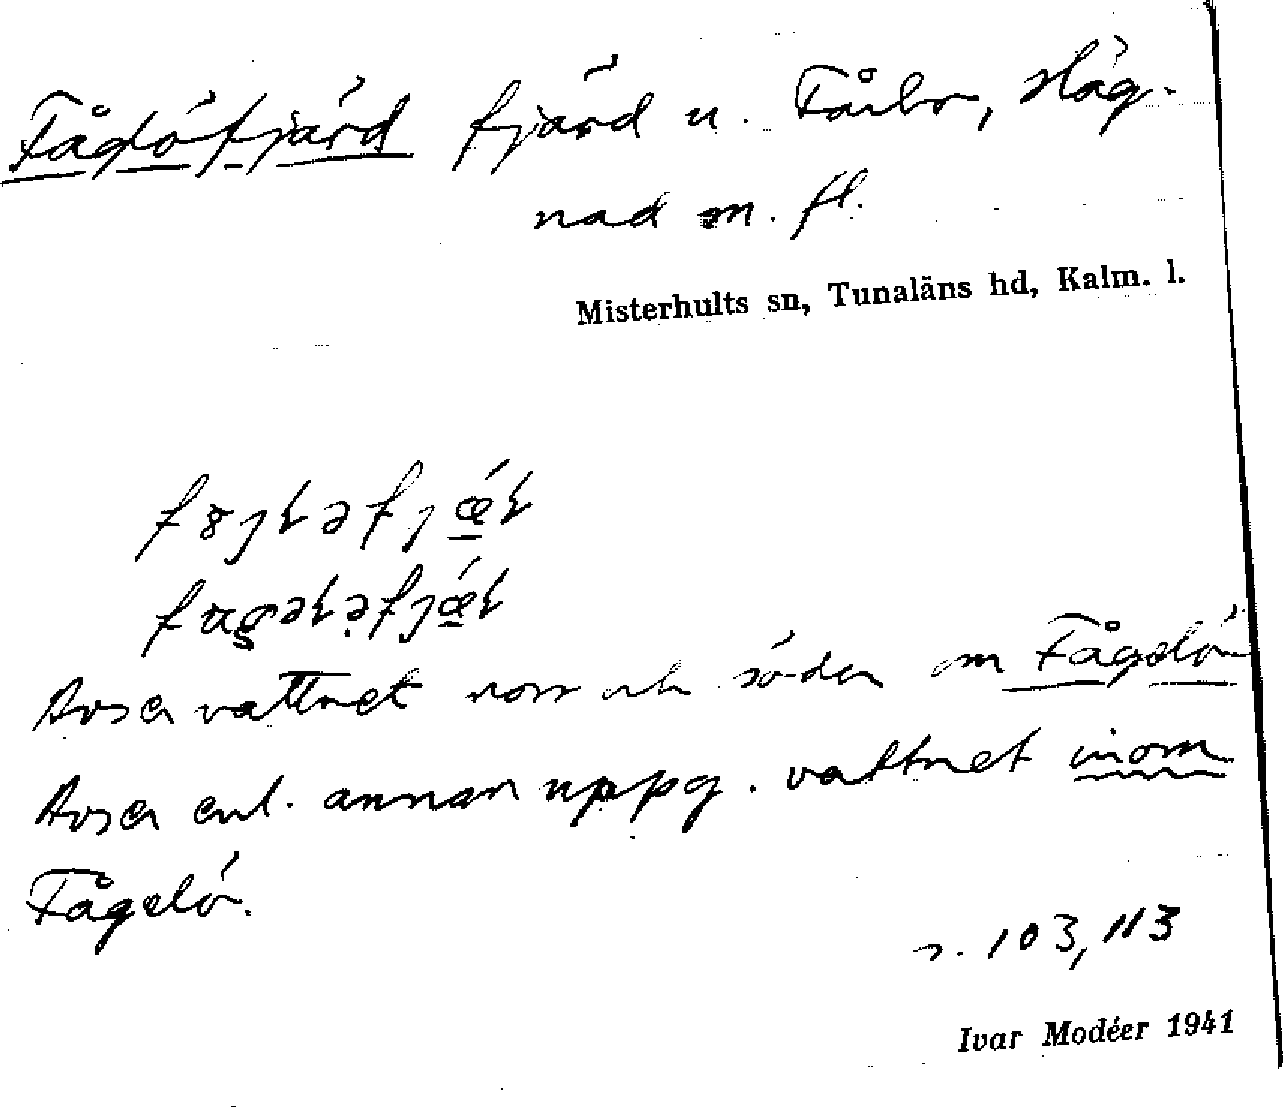 Fåglöfjärd fjärd u. Fårbo, Häg-
nad m. fl.
Misterhults sn, Tunaläns hd, Kalm. l.
Avser vattnet norr och söder om Fågelön
Avser enl. annan uppg. vattnet inom
Fågelön.
s. 103, 113
Ivar Modéer 1941